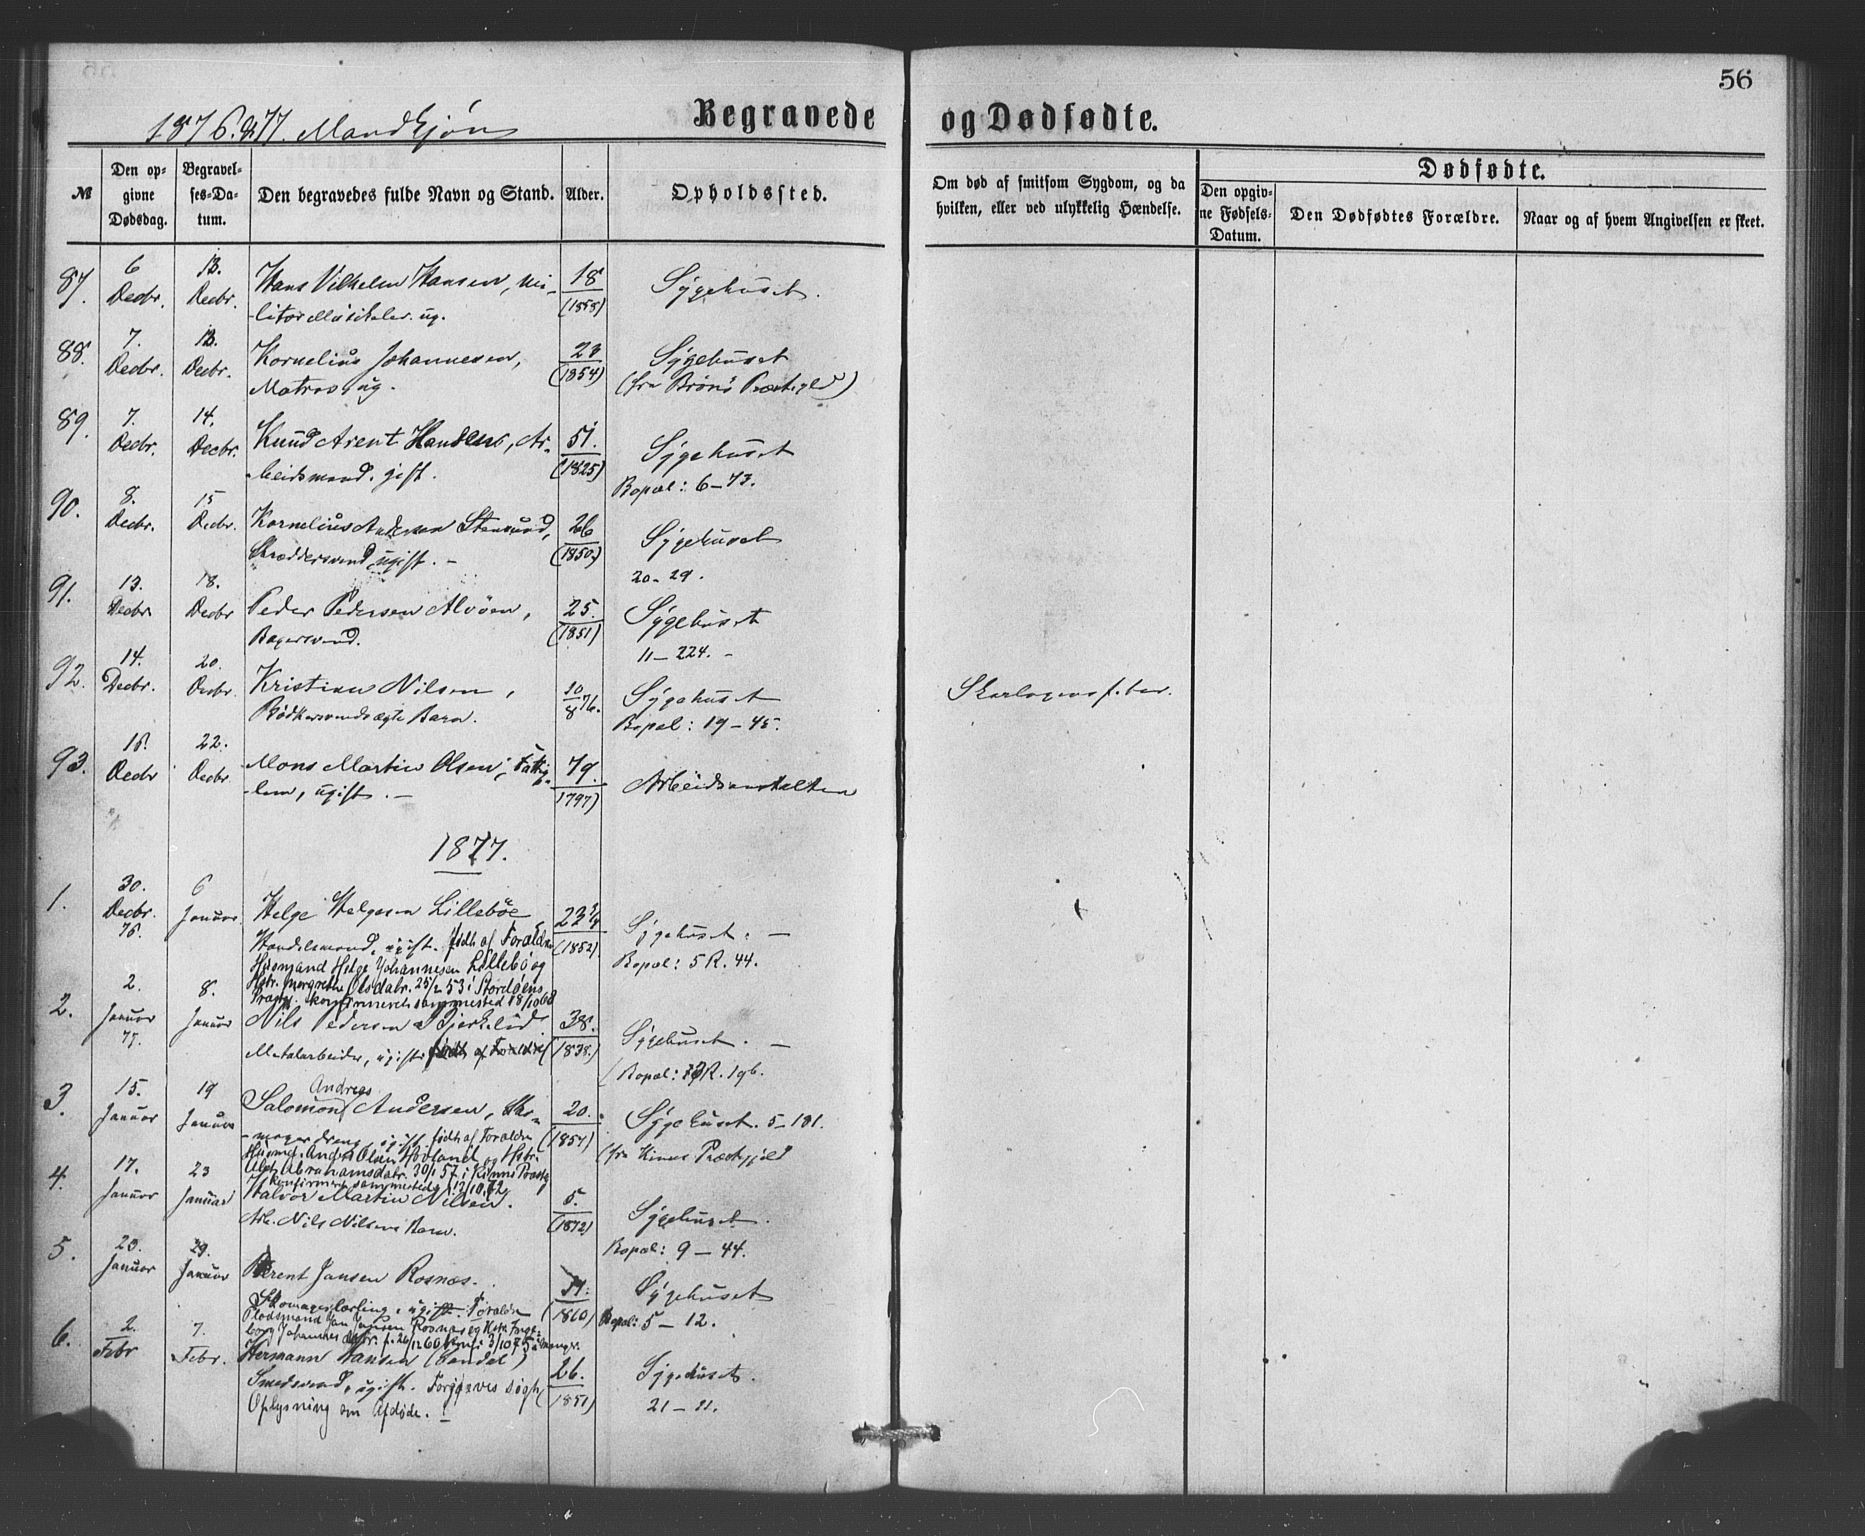 56
1876. & 77. Mandkjøn
Begravede og Dødfødte.
№
Den opgivne Dødsdag.
Begravelses-Datum.
Den begravedes fulde Navn og Stand.
Alder.
Opholdssted.
Om død af smitsom Sygdom, og da hvilken, eller ved ulykkelig Hændelse.
Dødfødte.
Den opgivne Fødsels-Datum.
Den Dødfødtes Forældre.
Naar og af hvem Angivelsen er skeet.
87. 6 Decbr. 13. Decbr. Hans Vilhelm Hansen, mi- 18 Sygehuset.
litær Musikeler. ug. (1858)
88. 7. Decbr. 13. Decbr. Kornelius Johannesen, 23 Sygehuset
Matros, ug. (1854) (fra Brønø Præstegjeld)
89. 7. Decbr. 14. Decbr. Knud Arent Handens, Ar- 51. Sygehuset
beidsmand. gift. (1825) Bopæl: 6–73.
90. 8. Decbr. 15 Decbr. Kornelius Andersen Stensund, 26 Sygehuset
Skræddersvend, ugift. – (1850.) 20–29.
91. 13. Decbr 18. Decbr Peder Pedersen Alvøen, 25. Sygehuset
Bagersvend. (1851) 11–224. –
92. 14. Decbr. 20. Decbr. Kristian Nilsen, 10/8 76. Sygehuset Skarlagensfeber.
Bødkersvends ægte Barn. Bopæl: 19–45.
93. 18. Decbr 22. Decbr. Mons Martin Olsen, Fattig- 79. Arbeidsanstalten
lem, ugift. – 1797)
1877.
1. 30. Decbr. 76. 6 Januar. Helge Helgesen Lillebøe 23 1/4 Sygehuset. –
Handelsmand, ugift. født af Forældre (1852) Bopæl: 5 R. 44.
Husmand Helge Johannesen Lillebø og
Hstr. Margrethe Olsdatr. 25/2 53 i Stordøens
Prægj. konfirmeret sammested 18/10 68
2. 2. Januar 77. 8. Januar Nils Pedersen Bjerkelid. 38. Sygehuset. –
Metalarbeider, ugift født af Forældre (1838.) (Bopæl: 13 R. 196.
3. 15. Januar 19 Januar Salomon Andreas Andersen, Sko- 20. Sygehuset. 5–181.
magerdreng, ugift. født af Forældre (1857) (fra Kinns Præstegjeld
Husmd. Anders Olsen Hovland og Hstr.
Abrahamsdatr. 30/1 57 i Kinns Præstg
konfirmert sammesteds 12/10 72
4. 17. Januar 23 Januar Halvor Martin Nilsen. 5. Sygehuset.
Arb. Nils Nilsens Barn. (1872) Bopæl: 9–44.
5. 23. Januar 29. Januar Berent Jansen Rosnæs. Sygehuset
Skomagerlærling, ugift. Forældre (1860) Bopæl: 5–12.
Plodsmand Jan Jansen Rosnæs og Hstr. Inge-
borg Johannesdtr. f. 26/12 60 konf. 3/10 75
6. 2. Febr 7. Febr. Hermann Hansen (Sandal) 26. Sygehuset.
Smedsvend, ugift. Forgjæves søgt (1851) 21–11.
Oplysning om Afdøde. –